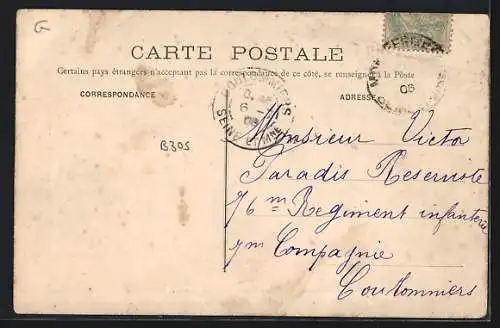 G
CARTE POSTALE
Certains pays étrangers n'acceptant pas la correspondance de ce côté, se renseigner à la Poste
CORRESPONDANCE
ADRESSE
06
COULOMMIERS
6
SEINE ET MNE
B305
Monsieur Victor
Paradis Reserviste
76me Regiment infanterie
7me Compagnie
Coulommiers